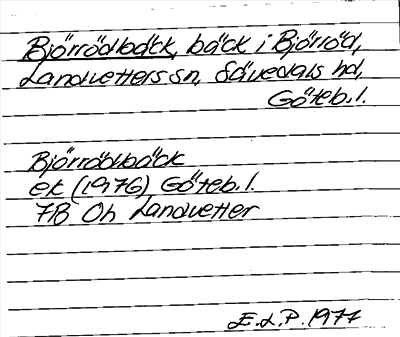 Björrödbäck, bäck i Björröd,
Landvetters sn, Sävedals hd,
Göteb. l.
Björrödbäck
ek (1976) Göteb. l.
7B Oh Landvetter
E.L.P. 1977